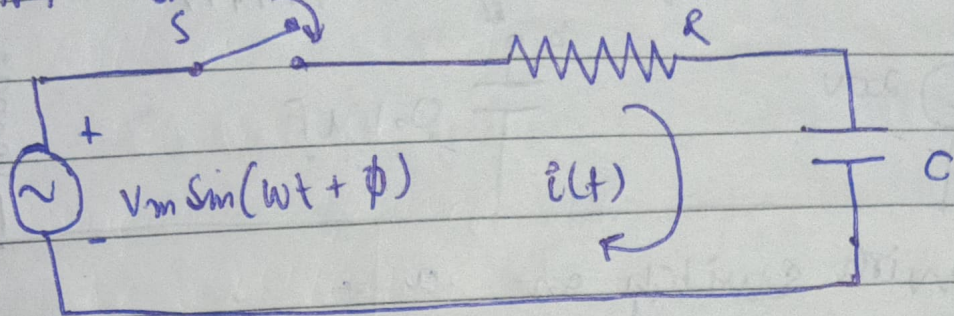 S
R
+
Vm Sin(wt + ϕ)
i(t)
C
-